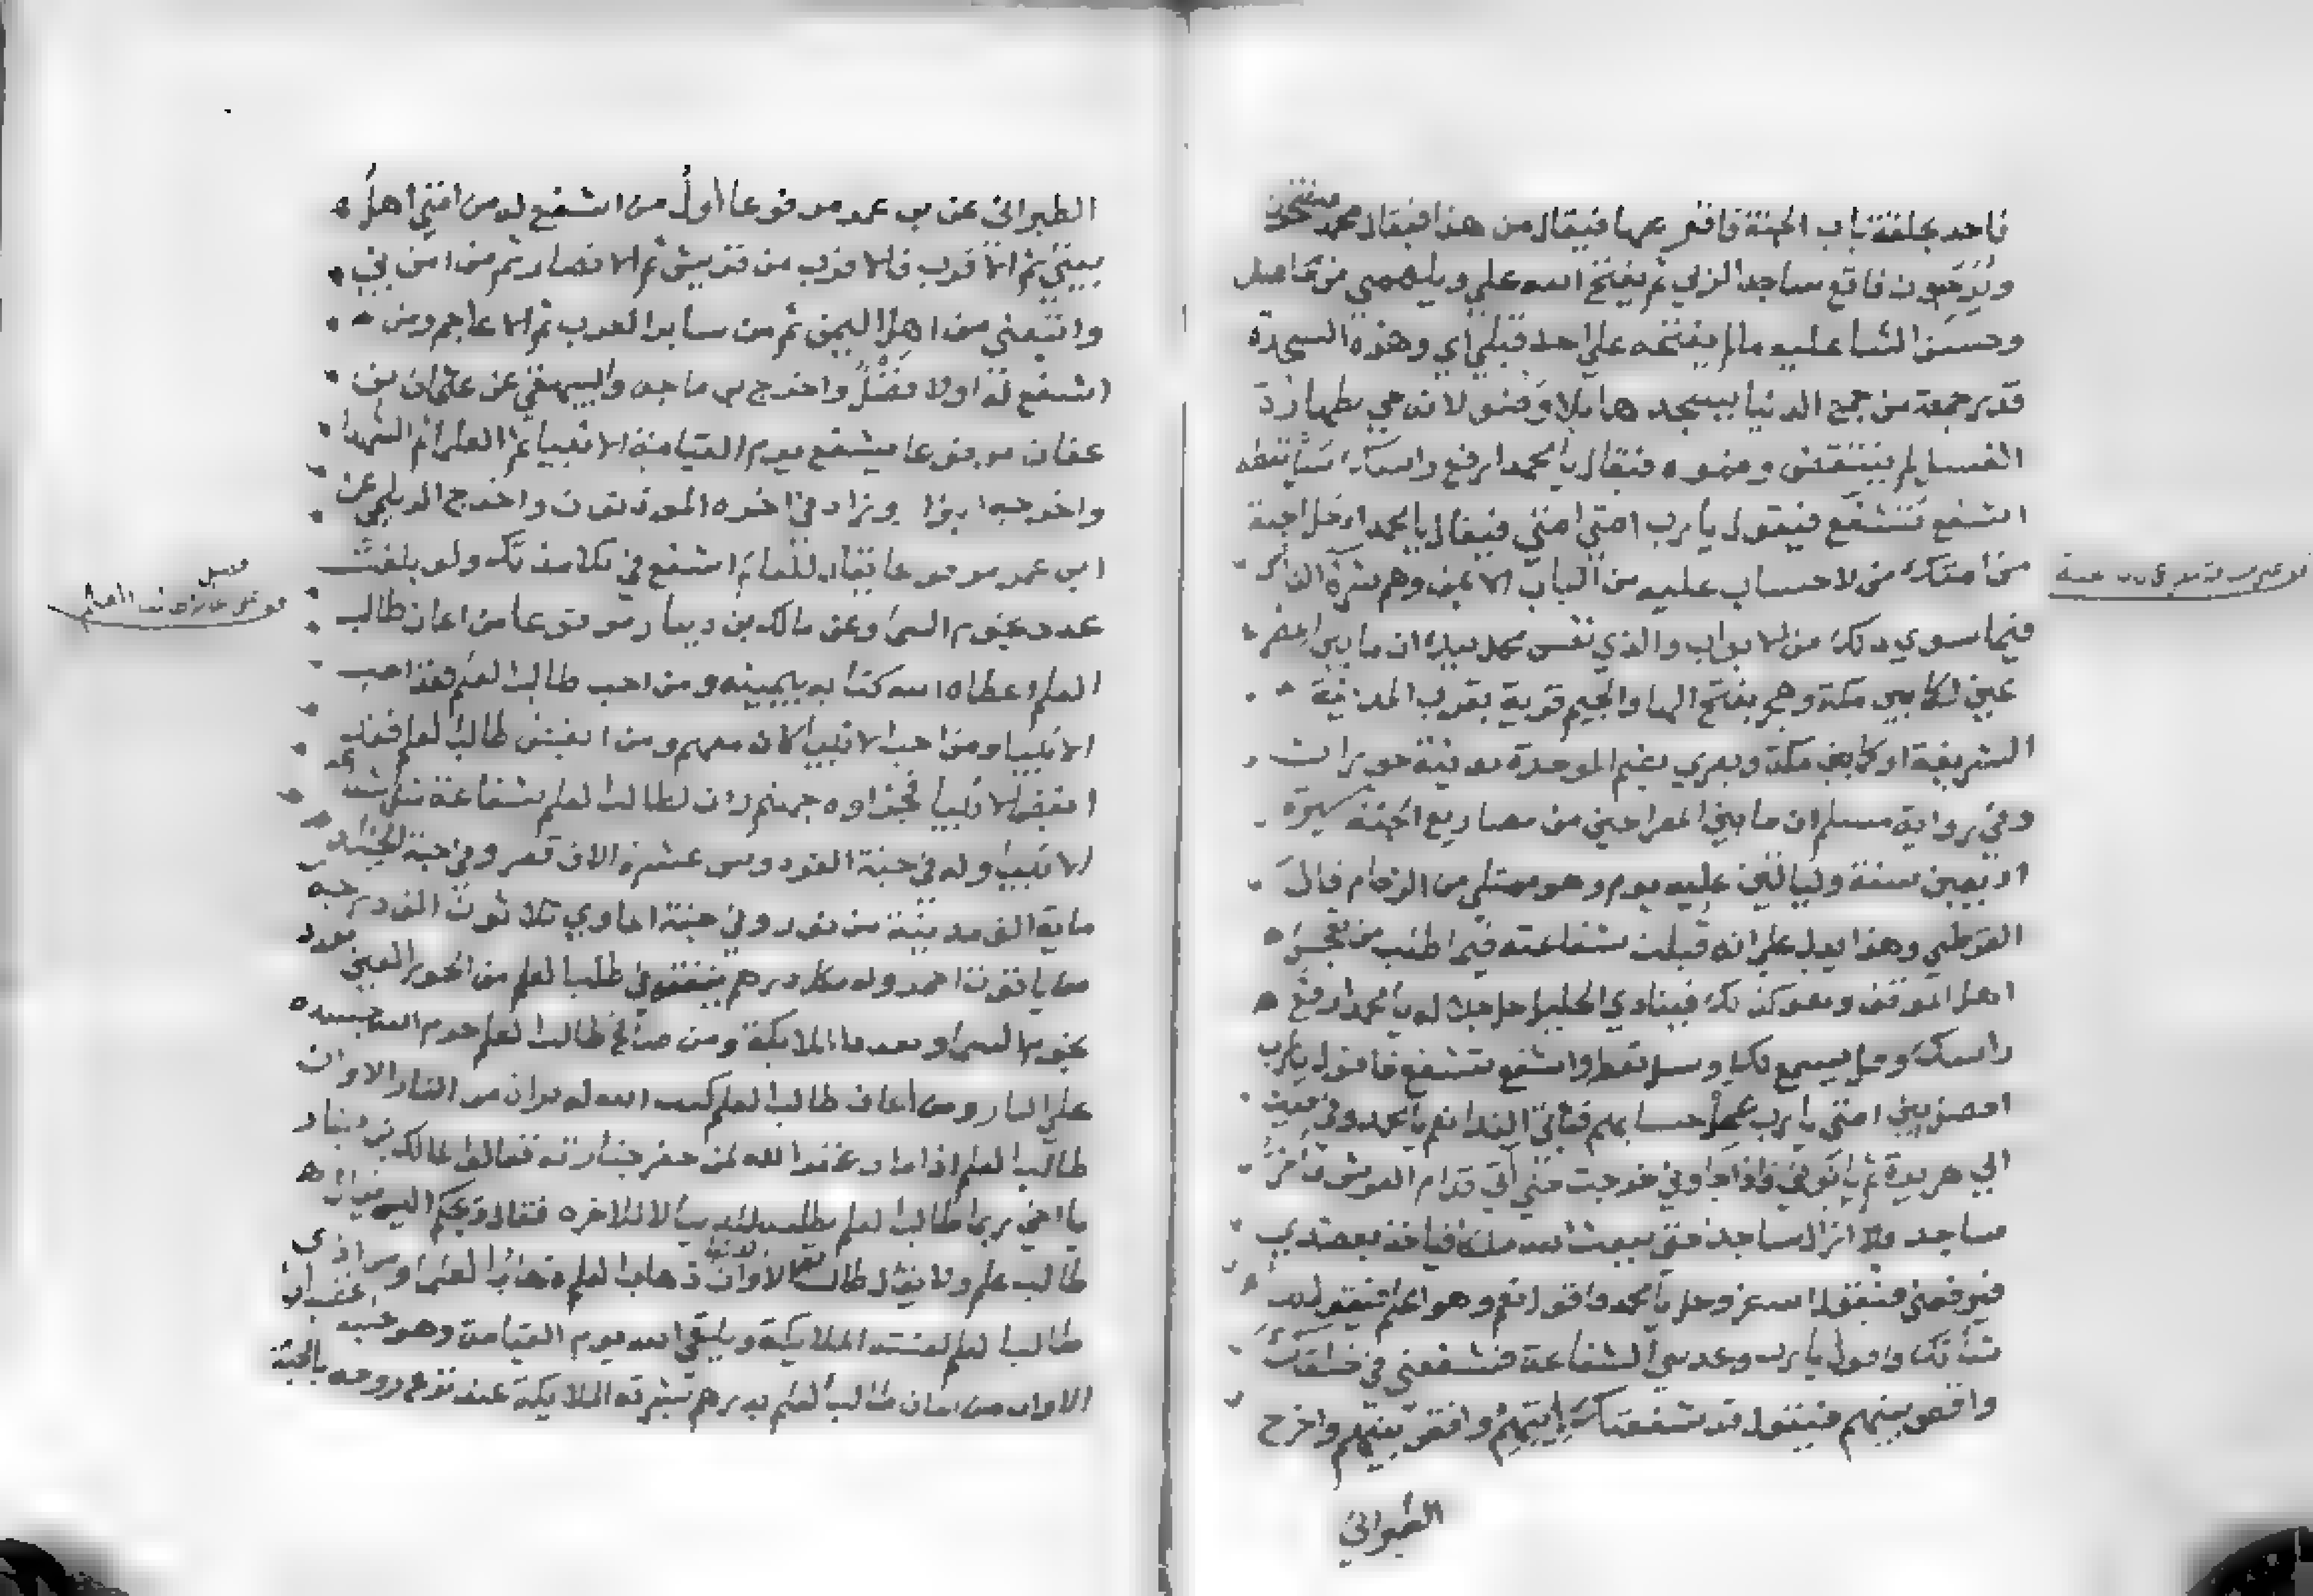 فاخذ بحلقة باب الجنة فاقعقعها فيقال من هذا فيقال محمد فيفتحون
ويرحبون فاقع ساجدا لربي ثم يفتح الله علي ويلهمني من محامده
وحسن الثنا عليه ما لم يفتحه علي احد قبلي اي وهذه السجدة
قدر جمعة من جمع الدنيا يسجدها بلا وضو لانه حي بطهارة
الغسل لم ينتقض وضوه فيقال يا محمد ارفع راسك سل تعطه
اشفع تشفع فيقول يا رب امتي امتي فيقال يا محمد ادخل الجنة
من امتك من لا حساب عليه من الباب الايمن وهم شركا الناس
فيما سوي ذلك من الابواب والذي نفس محمد بيده ان ما بين المصر
عين لكما بين مكة وهجر بفتح الها والجيم قرية بقرب المدينة
الشريفة او كما بين مكة وبصري بضم الموحدة مدينة حوران
وفي رواية مسلم ان ما بين المصراعين من مصاريع الجنة مسيرة
اربعين سنة ولياتين عليه يوم وهو ممتلي من الزحام قال
القرطبي وهذا يدل علي انه قبلت شفاعته فيما طلب من تعجيل
اهل الموقف
راسك وقل يسمع لك وسل تعط واشفع تشفع فاقول يا رب
امتي يا رب عجل حسابهم فياتي الندا نعم يا محمد وفي حديث
ابي هريرة ثم ياتوني فاذا جاوني خرجت حتي آتي قدام العرش فاخر
ساجدا ولا ازال ساجدا حتي يبعث الله ملكا فياخذ بعضدي
فيرفعني فيقول الله عز وجل يا محمد فاقول نعم وهو اعلم فيقول ما
شانك فاقول يا رب وعدتني الشفاعة فشفعني في خلقك
واقض بينهم فيقول قد شفعتك انا اتيهم واقض بينهم واخرج
الطبراني
الطبراني عن بن عمر مرفوعا اول من اشفع له من امتي اهل
بيتي ثم الاقرب فالاقرب من قريش ثم الانصار ثم من امن بي
واتبعني من اهل اليمن ثم من ساير العرب ثم الاعاجم ومن
اشفع له اولا افضل واخرج بن ماجه والبيهقي عن عثمان بن
عفان مرفوعا يشفع يوم القيامة الانبيا ثم العلما ثم الشهدا
واخرجه البزار وزاد في اخره الموذنون واخرج الديلمي عن
ابن عمر مرفوعا يقال للعالم اشفع في تلامذتك ولو بلغت
عدد نجوم السما وعن مالك بن دينار مرفوعا من اعان طالب
العلم اعطاه الله كتابه بيمينه ومن احب طالب العلم فقد احب
الانبيا ومن احب الانبيا كان معهم ومن ابغض طالب العلم فقد
ابغض الانبيا فجزاوه جهنم وان لطالب العلم شفاعة مثل شفاعة
الانبيا وله في جنة الفردوس عشرة الاف قصر وفي جنة الخلد
ماية الف مدينة من نور وفي جنة الماوي ثلاثون الف درجة
من ياقوت احمر وله بكل درهم ينفقه في طلب العلم من الحور العين بعدد
نجوم السما وبعدد الملايكة ومن صافح طالب العلم حرم الله جسده
علي النار ومن اعان طالب العلم كتب الله له براة من النار الا وان
طالب العلم اذا مات غفر الله لمن حضر جنازته فقالوا لمالك بن دينار
يا اخي نري طالب العلم يطلبه للدنيا لا للاخره فقال ويحكم اليس يقال
طالب علم ولا يقال طالب الدنيا الا وان ذهاب العلم ذهاب العلما ومن اذي
طالب العلم لعنته الملايكة ويلقي الله يوم القيامة وهو عليه غضبان
الا وان من اعان طالب العلم بدرهم بشرته الملايكة عند نزع روحه بالجنة